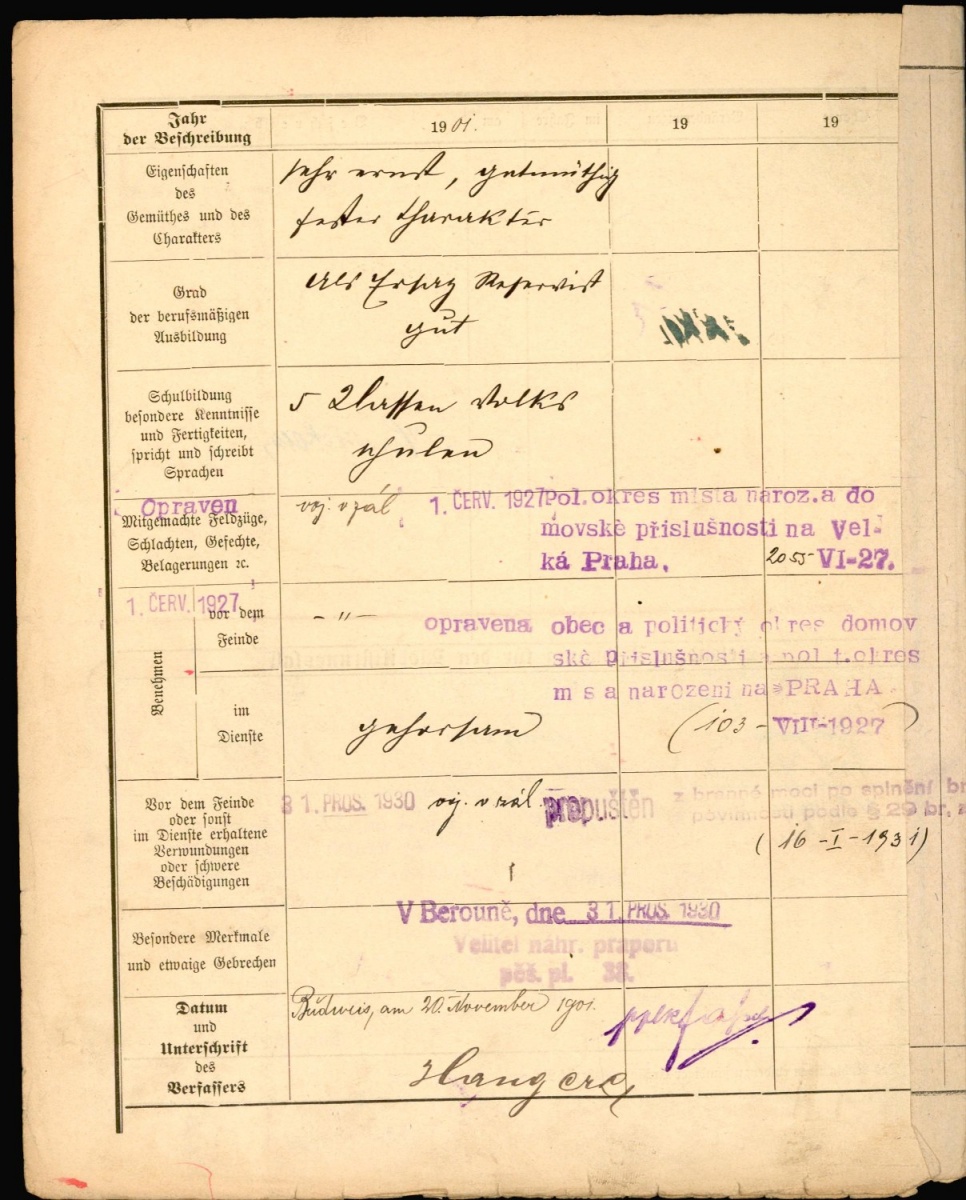 Jahr
der Beschreibung
1901.
19
19
Eigenschaften
des
Gemüthes und des
Charakters
sehr ernst, gutmüthig
fester Charakter
Grad
der berufsmäßigen
Ausbildung
Als Ersatz Reservist
gut
Schulbildung
besondere Kenntnisse
und Fertigkeiten,
spricht und schreibt
Sprachen
5 Classen Volks
schulen
Opraven
Mitgemachte Feldzüge,
Schlachten, Gefechte,
Belagerungen ꝛc.
voj. v zál
1. ČERV. 1927
Pol.okres mista naroz.a do
movskè přislušnosti na Vel-
ká Praha.
2055 VI-27.
1. ČERV. 1927
Benehmen
vor dem
Feinde
- " -
opravena obec a politický okres domov
skè přislušnosti a polit.okres
m s a narozeni na PRAHA
(103 - VIII-1927)
im
Dienste
gehorsam
Vor dem Feinde
oder sonst
im Dienste erhaltene
Verwundungen
oder schwere
Beschädigungen
31. PROS. 1930 voj. v zál. propuštěn
z branné moci po splnění br
povinnosti podle § 29 br. z
(16 - I - 1931)
V Berouně, dne 31. PROS. 1930
Velitel náhr. praporu
pěš. pl. 38.
Besondere Merkmale
und etwaige Gebrechen
Datum
und
Unterschrift
des
Verfassers
Budweis, am 20. November 1901.